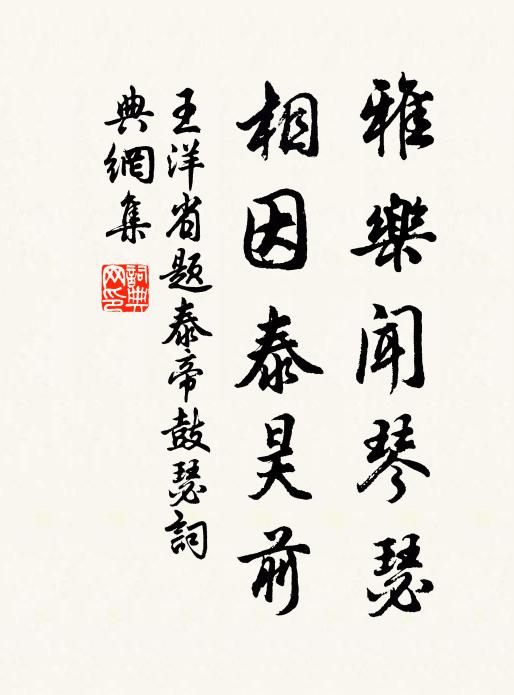 雅樂闻琴瑟
相因泰昊前
王洋省题泰帝鼓瑟詞
典網集
詞典网印